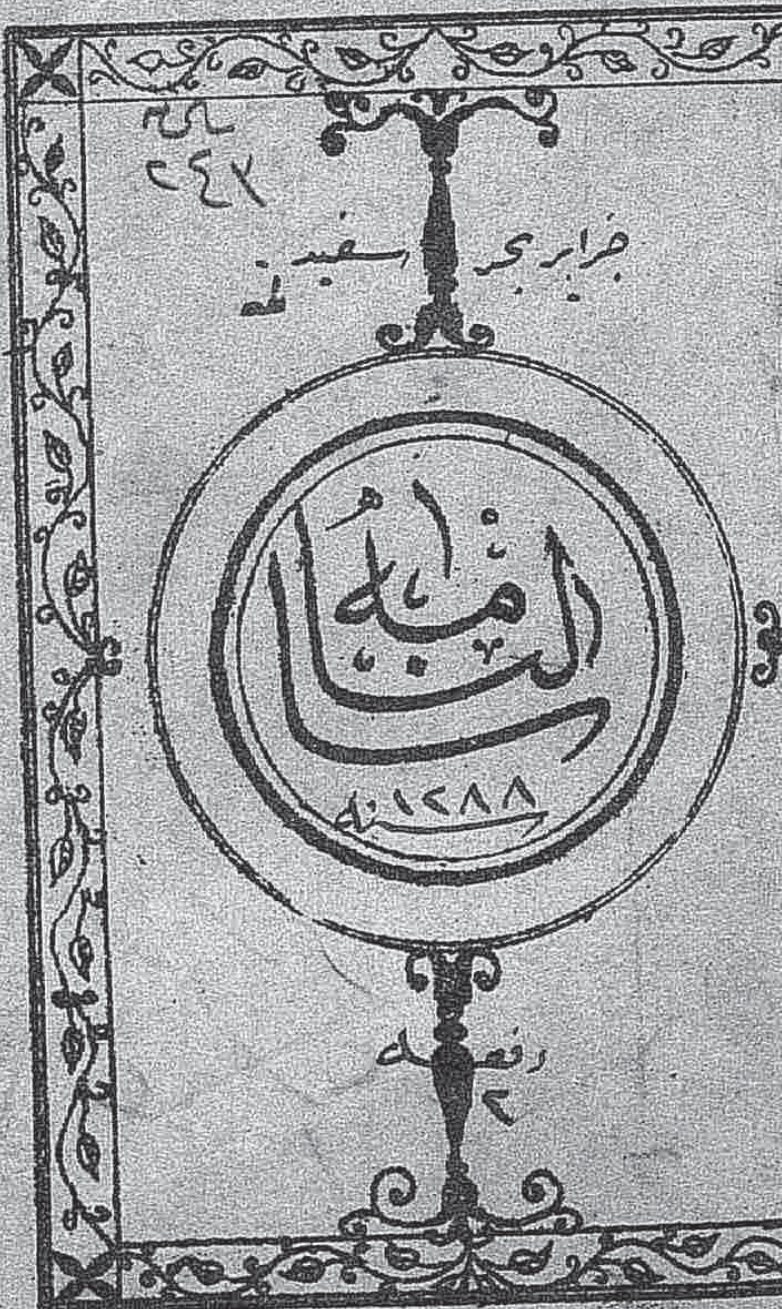 ٢٤٧
جزایر بحر سفید
سالنامه
سنه ١٢٨٨
دفعه
٢